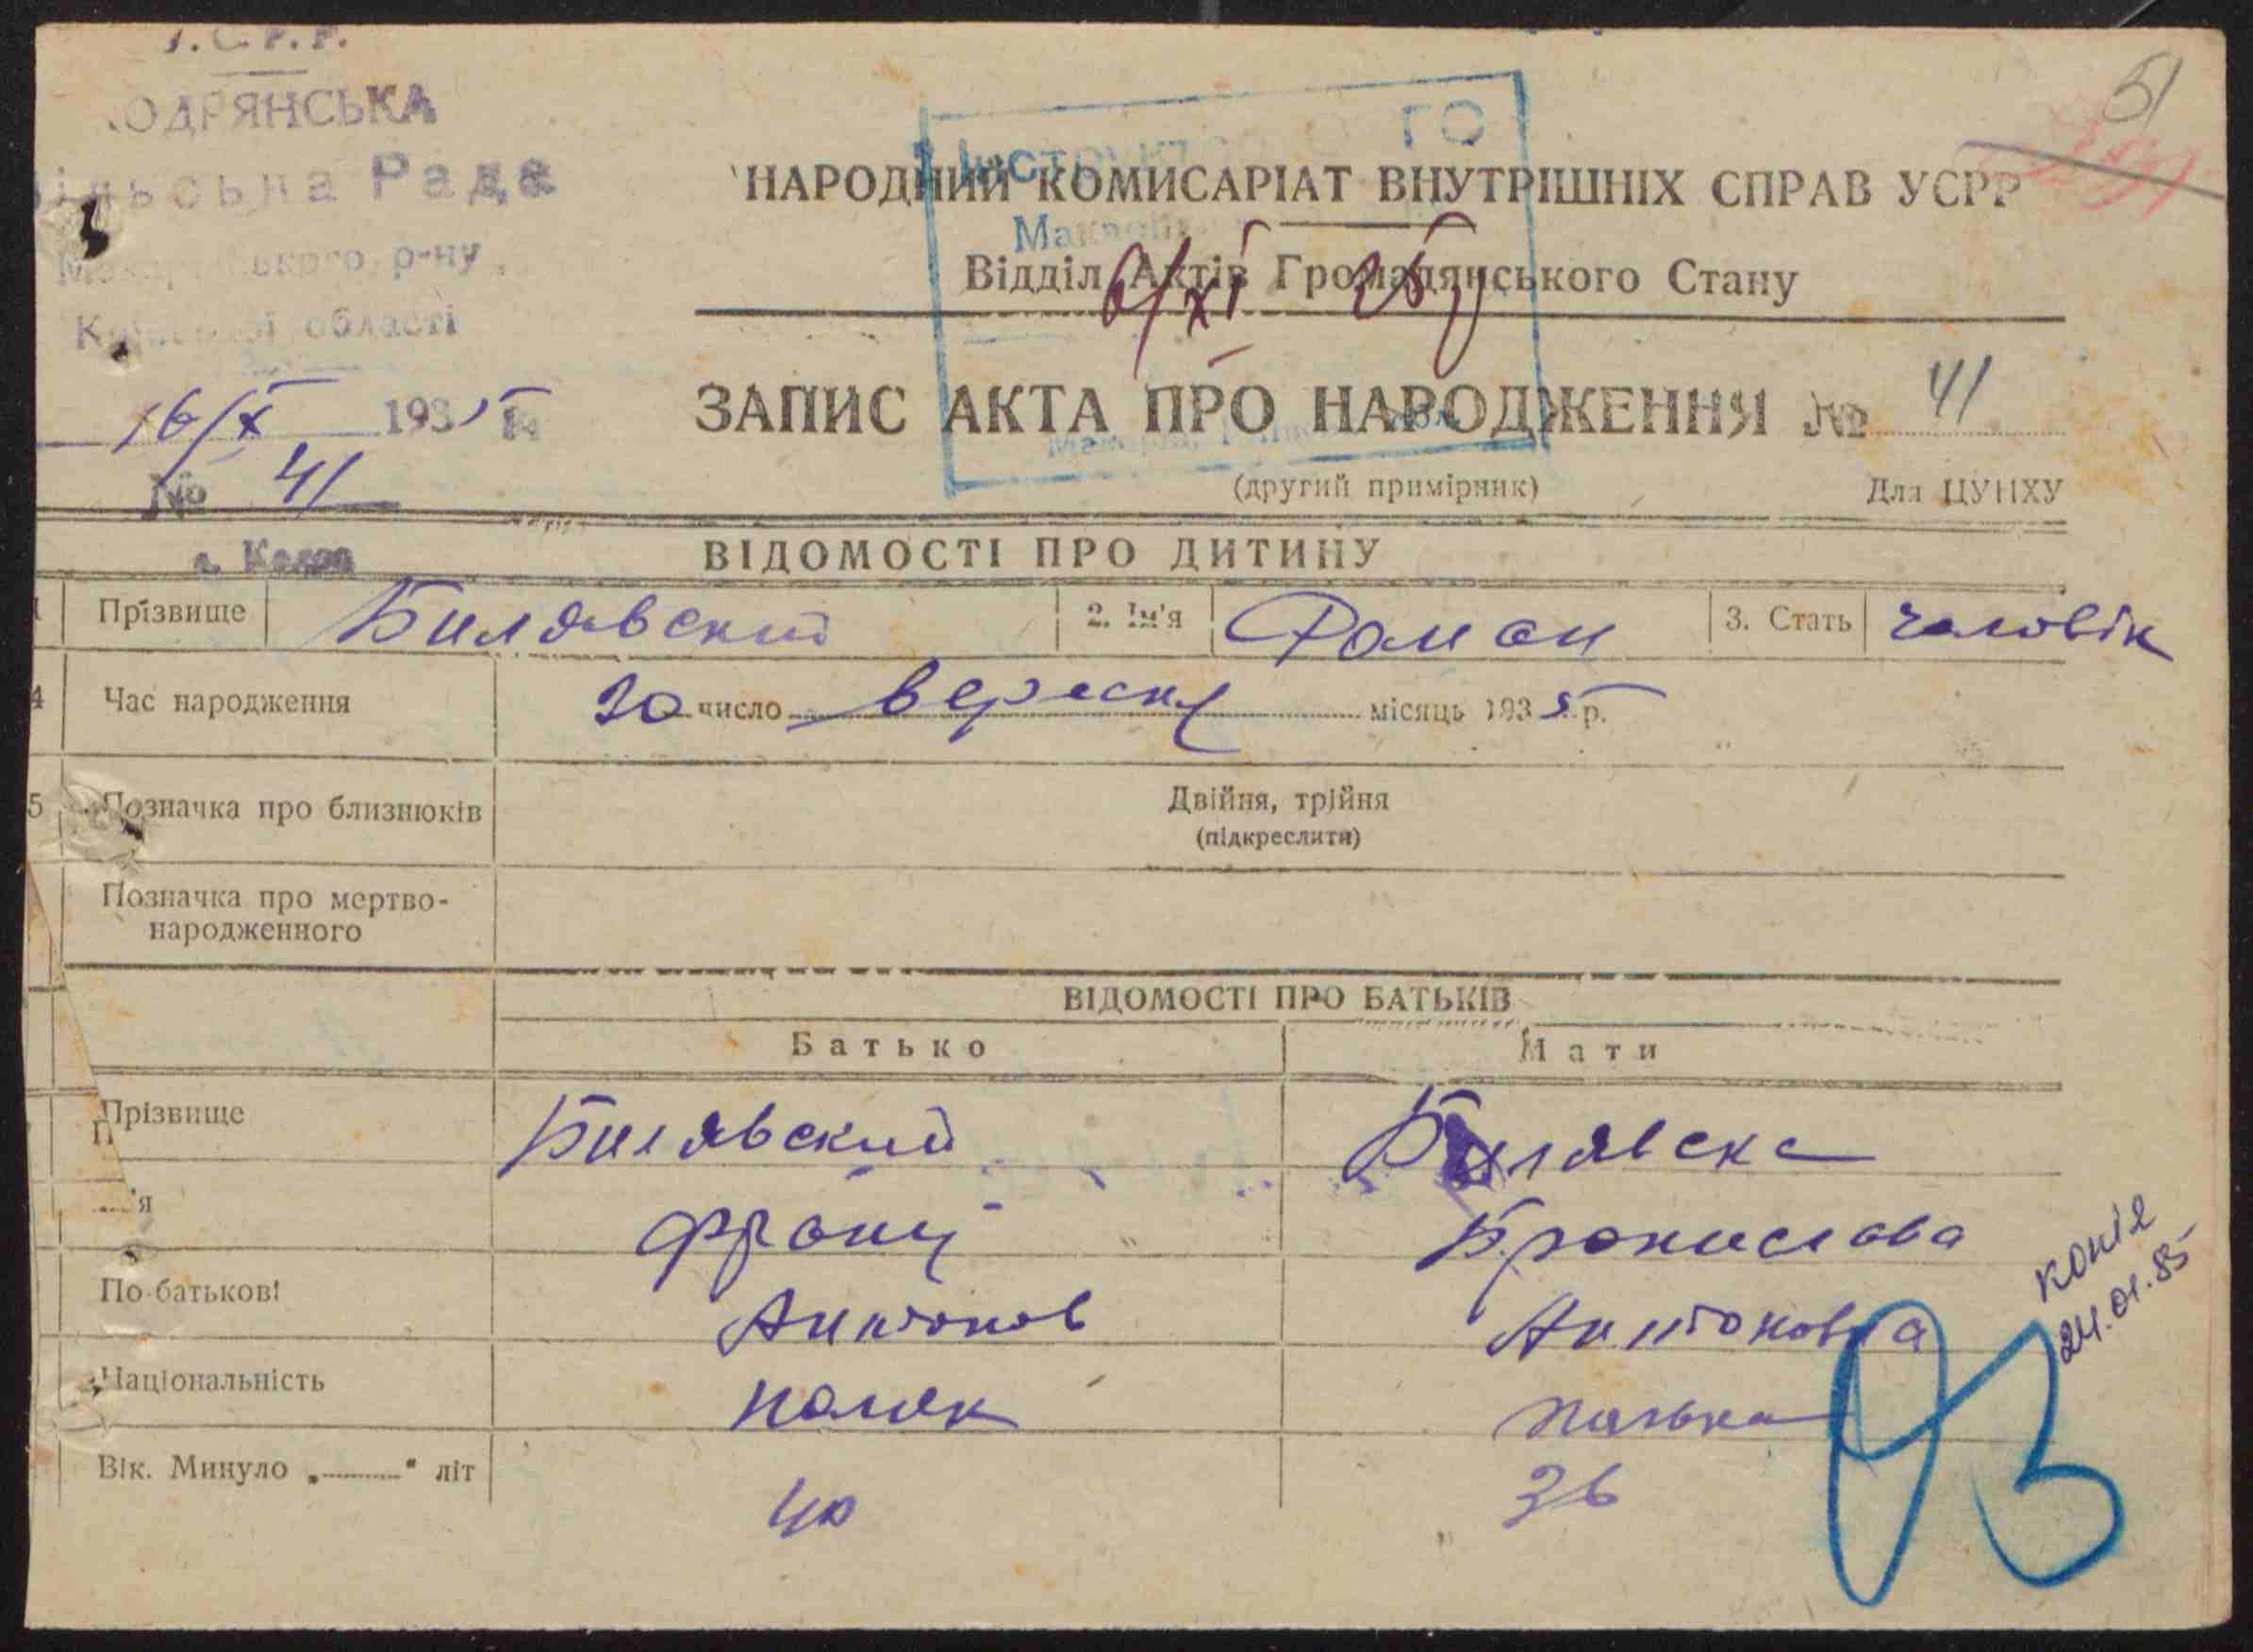 У.С.Р.Р.
КОДРЯНСЬКА
Сільська Рада
Макарівського р-ну
Київської області
16/X 1935 р.
№ 41
с. Кодра
51
Інструктор ГО
НАРОДНИЙ КОМИСАРІАТ ВНУТРІШНІХ СПРАВ УСРР
Відділ Актів Громадянського Стану
6/XI 35 р
ЗАПИС АКТА ПРО НАРОДЖЕННЯ № 41
(другий примірник) Для ЦУНХУ
ВІДОМОСТІ ПРО ДИТИНУ
1 Прізвище Билявский 2. Ім'я Роман 3. Стать чоловік
4 Час народження 20 число вересня місяць 1935 р.
5 Позначка про близнюків Двійня, трійня
(підкреслити)
Позначка про мертво-
народженного
ВІДОМОСТІ ПРО БАТЬКІВ
Батько Мати
Прізвище Билявский Билявска
'я Франц Бронислава
По-батькові Антонов Антоновна
Національність поляк полька
Вік. Минуло „ “ літ 40 36
копія
24.01.85